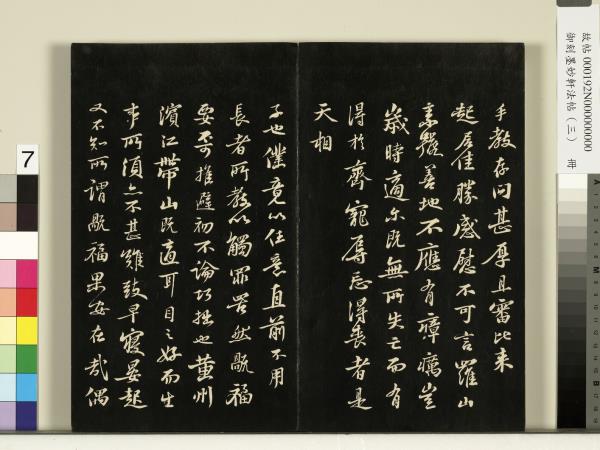 故帖000192N000000000
御刻墨妙軒法帖（三） 冊
手教存問甚厚且審比來
起居佳勝感慰不可言羅山
素號善地不應有瘴癘豈
歲時適尓既無所失亡而有
得於齊寵辱忘得喪者是
天相
子也僕竟以任意直前不用
長者所教以觸罪罟然旤福
要不可推避初不論巧拙也黃州
濱江帶山既適耳目之好而生
事所須亦不甚難致早寢晏起
又不知所謂旤福果安在哉偶
7
A
M
B